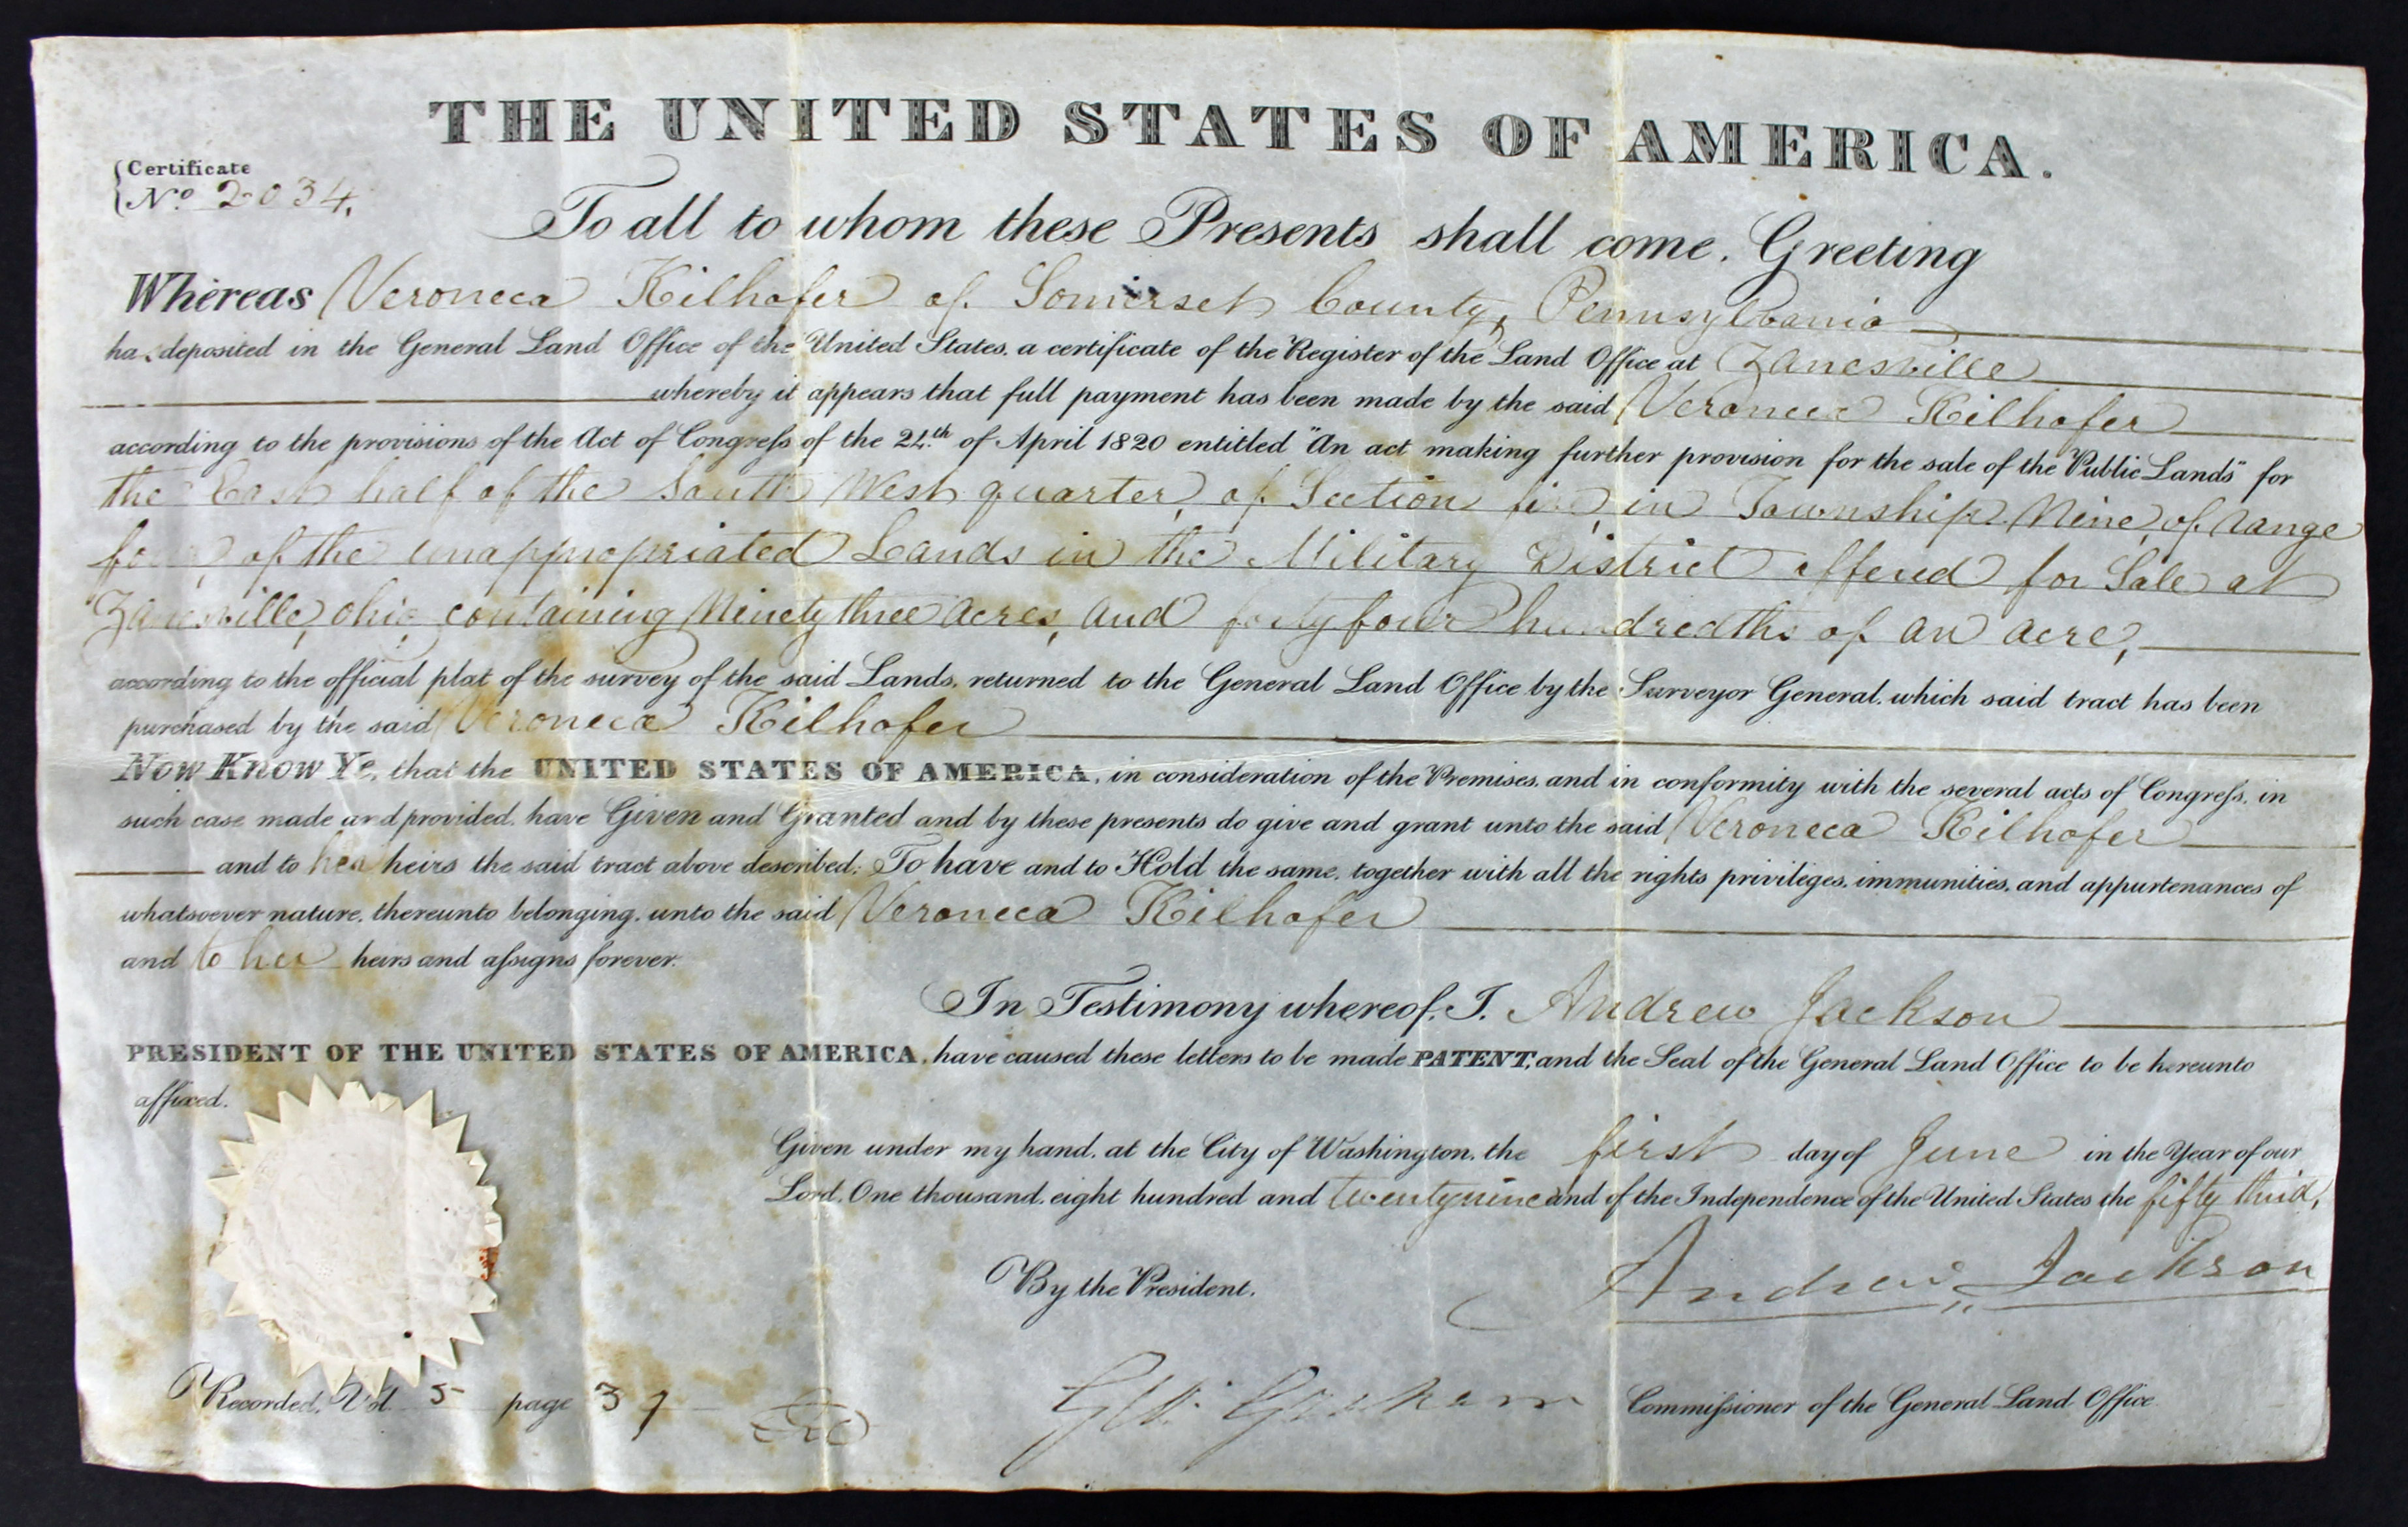 THE UNITED STATES OF AMERICA.
Certificate
No. 2034.
To all to whom these Presents shall come, Greeting
Whereas Veroneca Kilhofer of Somerset County, Pennsylvania
has deposited in the General Land Office of the United States, a certificate of the Register of the Land Office at Zanesville
whereby it appears that full payment has been made by the said Veroneca Kilhofer
according to the provisions of the Act of Congress of the 24th of April 1820 entitled "An act making further provision for the sale of the Public Lands" for
the East half of the South West quarter, of Section in Township Nine, of range
four, of the unappropriated Lands in the Military District offered for Sale at
Zanesville, Ohio, containing Ninety three acres, and forty four hundredths of an acre,
according to the official plat of the survey of the said Lands, returned to the General Land Office by the Surveyor General, which said tract has been
purchased by the said Veroneca Kilhofer
Now Know Ye, that the UNITED STATES OF AMERICA, in consideration of the Premises, and in conformity with the several acts of Congress, in
such case made and provided, have Given and Granted and by these presents do give and grant unto the said Veroneca Kilhofer
and to her heirs the said tract above described: To have and to Hold the same, together with all the rights privileges, immunities, and appurtenances of
whatsoever nature, thereunto belonging, unto the said Veroneca Kilhofer
and to her heirs and assigns forever.
In Testimony whereof, I, Andrew Jackson
PRESIDENT OF THE UNITED STATES OF AMERICA, have caused these letters to be made PATENT, and the Seal of the General Land Office to be hereunto
affixed.
Given under my hand, at the City of Washington, the first day of June in the Year of our
Lord, One thousand, eight hundred and twenty nine and of the Independence of the United States the fifty third,
By the President.
Andrew Jackson
Recorded, Vol. 5 page 37
G W Graham Commissioner of the General Land Office